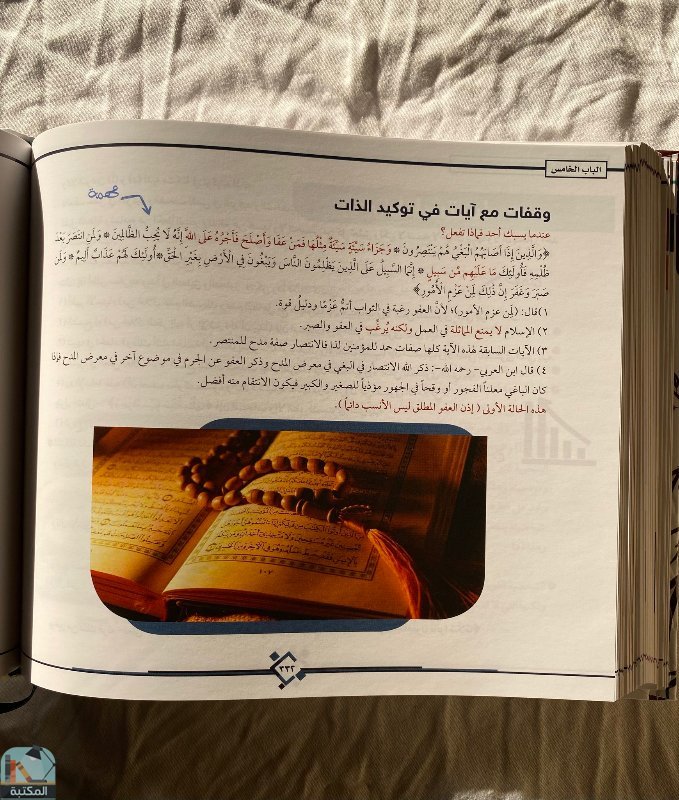 الباب الخامس
وقفات مع آيات في توكيد الذات
مهمة
عندما يسبك أحد فماذا تفعل؟
﴿وَالَّذِينَ إِذَا أَصَابَهُمُ الْبَغْيُ هُمْ يَنْتَصِرُونَ * وَجَزَاءُ سَيِّئَةٍ سَيِّئَةٌ مِثْلُهَا فَمَنْ عَفَا وَأَصْلَحَ فَأَجْرُهُ عَلَى اللهِ إِنَّهُ لَا يُحِبُّ الظَّالِمِينَ * وَلَمَنِ انْتَصَرَ بَعْدَ
ظُلْمِهِ فَأُولَئِكَ مَا عَلَيْهِم مِّن سَبِيلٍ * إِنَّمَا السَّبِيلُ عَلَى الَّذِينَ يَظْلِمُونَ النَّاسَ وَيَبْغُونَ فِي الْأَرْضِ بِغَيْرِ الْحَقِّ * أُولَئِكَ لَهُمْ عَذَابٌ أَلِيمٌ * وَلَمَن
صَبَرَ وَغَفَرَ إِنَّ ذَلِكَ لَمِنْ عَزْمِ الْأُمُورِ﴾
١) قال: (لمِن عزمِ الأمور)؛ لأنَّ العفو رغبة في الثواب أتمُّ عَزْمًا ودليلُ قوة.
٢) الإسلام لا يمنع المماثلة في العمل ولكنه يُرغِّب في العفو والصبر.
٣) الآيات السابقة لهذه الآية كلها صفات حمد للمؤمنين لذا فالانتصار صفة مدح للمنتصر.
٤) قال ابن العربي- رحمه الله-: ذكر الله الانتصار في البغي في معرض المدح وذكر العفو عن الجرم في موضوع آخر في معرض المدح فإذا
كان الباغي معلناً الفجور أو وقحاً في الجهور مؤذياً للصغير والكبير فيكون الانتقام منه أفضل.
هذه الحالة الأولى ( إذن العفو المطلق ليس الأنسب دائماً ).
٣٣٢
المكتبة